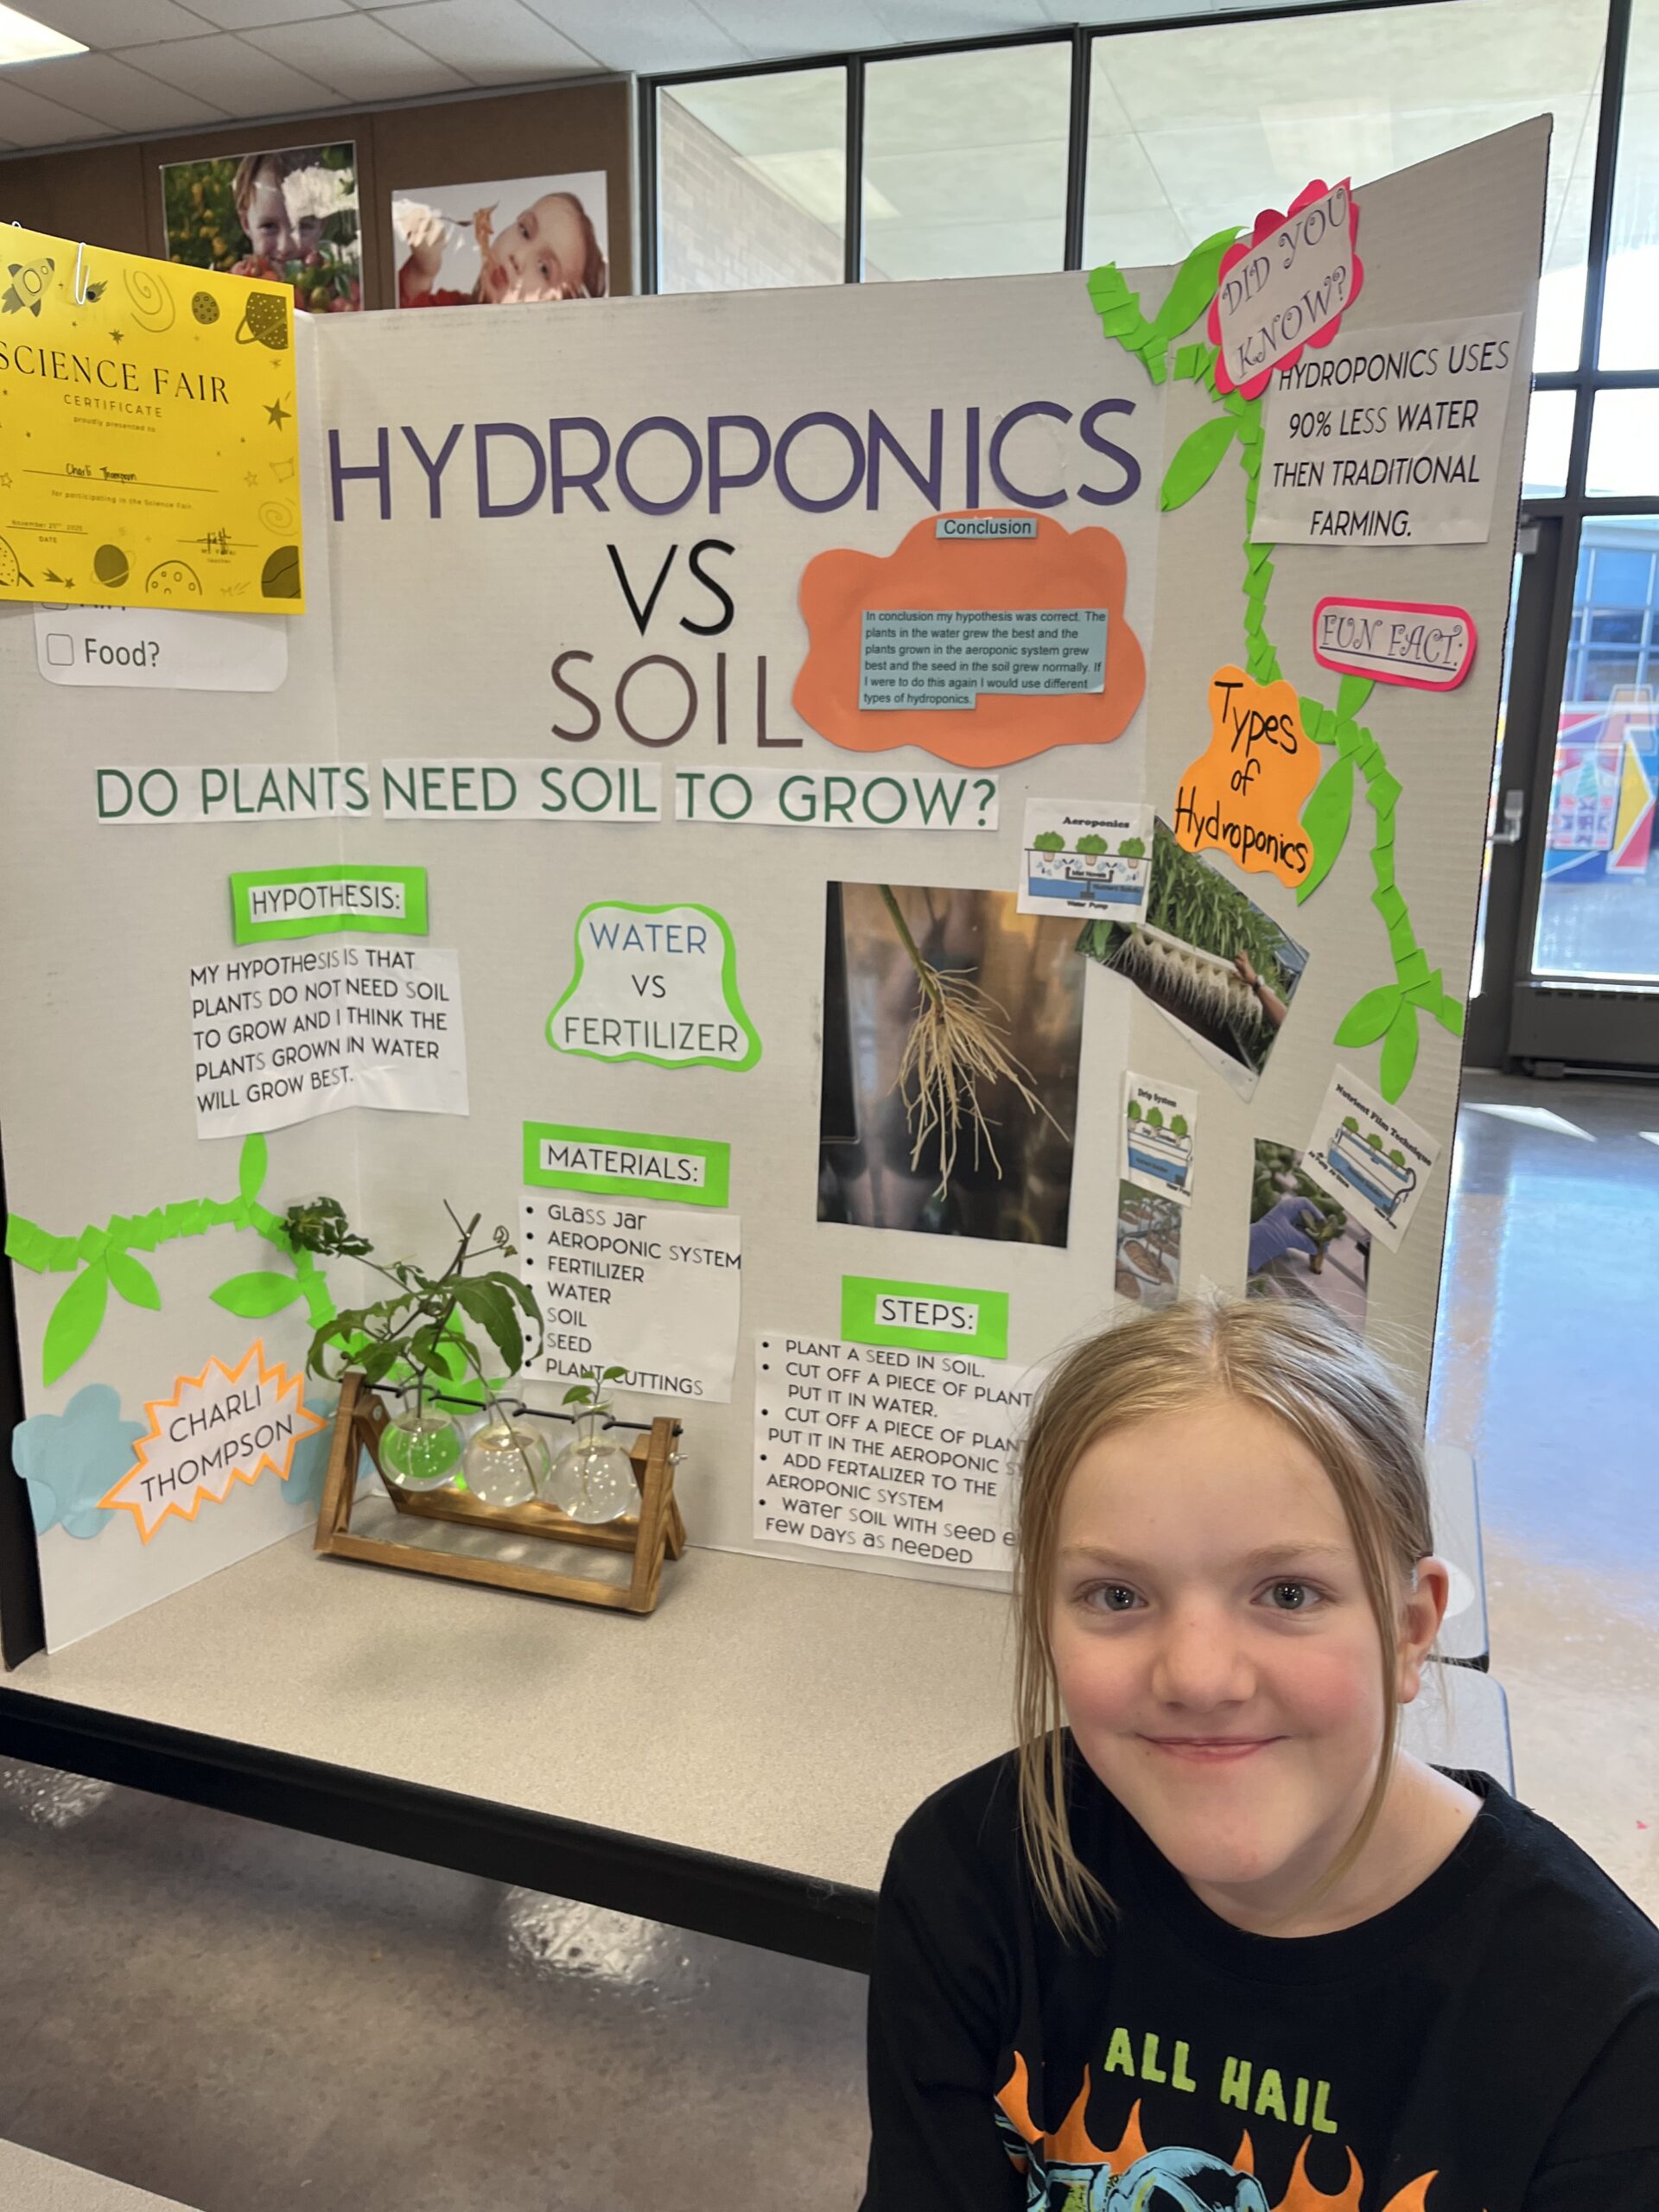 SCIENCE FAIR
CERTIFICATE
proudly presented to
Charli Thompson
for participating in the Science Fair
November 25th, 2025
DATE
Teacher
Food?
HYDROPONICS
VS
SOIL
DO PLANTS NEED SOIL TO GROW?
Conclusion
In conclusion my hypothesis was correct. The
plants in the water grew the best and the
plants grown in the aeroponic system grew
best and the seed in the soil grew normally. If
I were to do this again I would use different
types of hydroponics.
HYPOTHESIS:
MY HYPOTHESIS IS THAT
PLANTS DO NOT NEED SOIL
TO GROW AND I THINK THE
PLANTS GROWN IN WATER
WILL GROW BEST.
CHARLI
THOMPSON
WATER
VS
FERTILIZER
MATERIALS:
• GLASS JAR
• AEROPONIC SYSTEM
• FERTILIZER
• WATER
SOIL
• SEED
• PLANT CUTTINGS
STEPS:
• PLANT A SEED IN SOIL.
• CUT OFF A PIECE OF PLANT
PUT IT IN WATER.
• CUT OFF A PIECE OF PLAN
PUT IT IN THE AEROPONIC S
• ADD FERTALIZER TO THE
AEROPONIC SYSTEM
• WATER SOIL WITH SEED E
FEW DAYS AS NEEDED
DID YOU
KNOW?
HYDROPONICS USES
90% LESS WATER
THEN TRADITIONAL
FARMING.
FUN FACT:
Types
of
Hydroponics
Aeroponics
Mist Nozzle
Water Pump
Drip System
Nutrient Film Technique
ALL HAIL